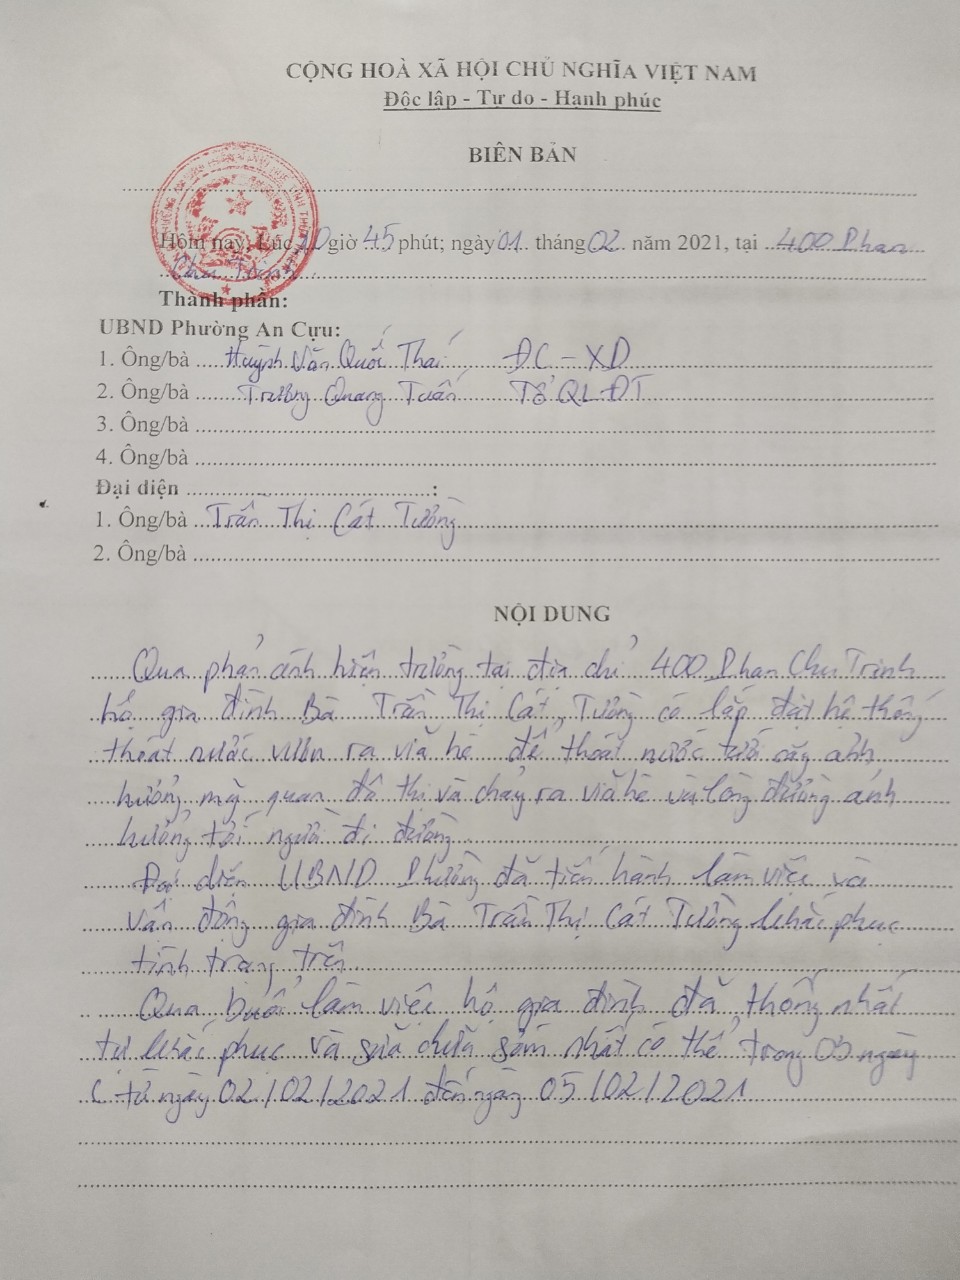 CỘNG HOÀ XÃ HỘI CHỦ NGHĨA VIỆT NAM
Độc lập - Tự do - Hạnh phúc
BIÊN BẢN
Hôm nay, Lúc 10 giờ 45 phút; ngày 01 tháng 02 năm 2021, tại 400 Phan
Chu Trinh
Thành phần:
UBND Phường An Cựu:
1. Ông/bà Huỳnh Văn Quốc Thái ĐC - XD
2. Ông/bà Trương Quang Tuấn Tổ QLĐT
3. Ông/bà
4. Ông/bà
Đại diện :
1. Ông/bà Trần Thị Cát Tường
2. Ông/bà
NỘI DUNG
Qua phản ánh hiện trường tại địa chỉ 400 Phan Chu Trinh
hộ gia đình Bà Trần Thị Cát Tường có lắp đặt hệ thống
thoát nước vươn ra vỉa hè để thoát nước tưới cây ảnh
hưởng mỹ quan đô thị và chảy ra vỉa hè và lòng đường ảnh
hưởng tới người đi đường.
Đại diện UBND Phường đã tiến hành làm việc và
vận động gia đình Bà Trần Thị Cát Tường khắc phục
tình trạng trên.
Qua buổi làm việc hộ gia đình đã thống nhất
tự khắc phục và sửa chữa sớm nhất có thể, trong 03 ngày
( từ ngày 02/02/2021 đến ngày 05/02/2021